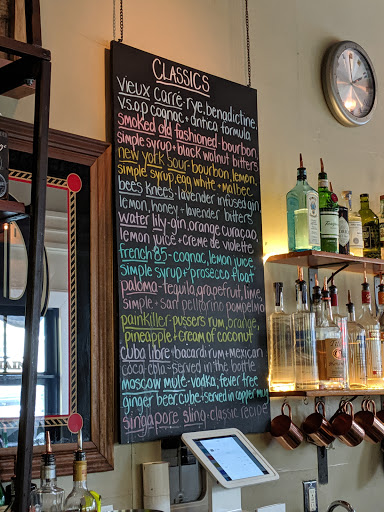 CLASSICS
vieux carré-rye, benedictine,
v.s.o.p cognac + antica formula
smoked old fashioned-bourbon
simple syrup + black walnut bitters
new york sour-bourbon, lemon,
simple syrup, egg white + malbec
bees knees-lavender infused gin,
lemon, honey-lavender bitters
water lily-gin, orange curaçao,
lemon juice + creme de violette
french 85-cognac, lemon juice
simple syrup + prosecco float
paloma-tequila, grapefruit, lime,
simple + san pellegrino pompelmo
painkiller-pussers rum, orange,
pineapple + cream of coconut
cuba libre-bacardi rum + mexican
coca cola-served in the bottle
moscow mule-vodka, fever tree
ginger beer, cube + served in copper mug
singapore sling-classic recipe